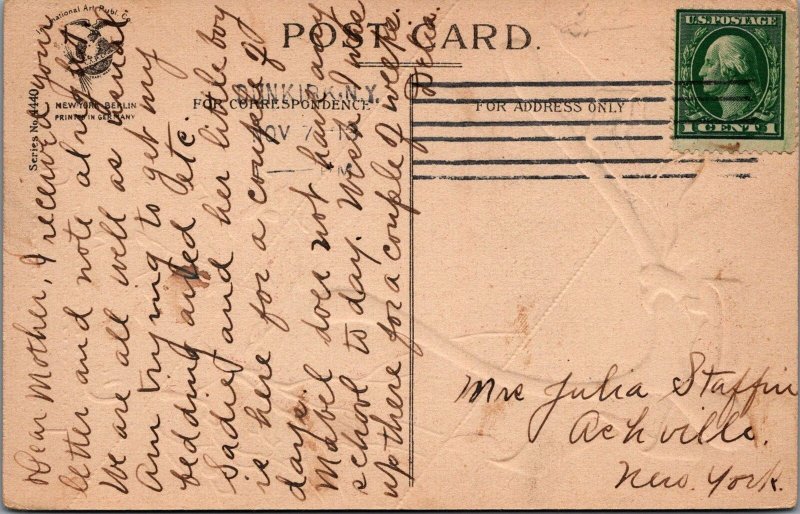 POST CARD.
International Art Publ. Co.
NEW YORK - BERLIN
PRINTED IN GERMANY
Series No. 4440
FOR CORRESPONDENCE
FOR ADDRESS ONLY
DUNKIRK, N.Y.
NOV 7 - 13
PM
U.S. POSTAGE
1 CENT 1
Dear Mother, I received your
letter and note alright
We are all well as usual
Am trying to get my
bedding aired etc.
Sadie and her little boy
is here for a couple of
days.
Mabel does not have any
school to day. Wish I was
up there for a couple of weeks.
Delia.
Mrs Julia Staffin
Ashville.
New York.